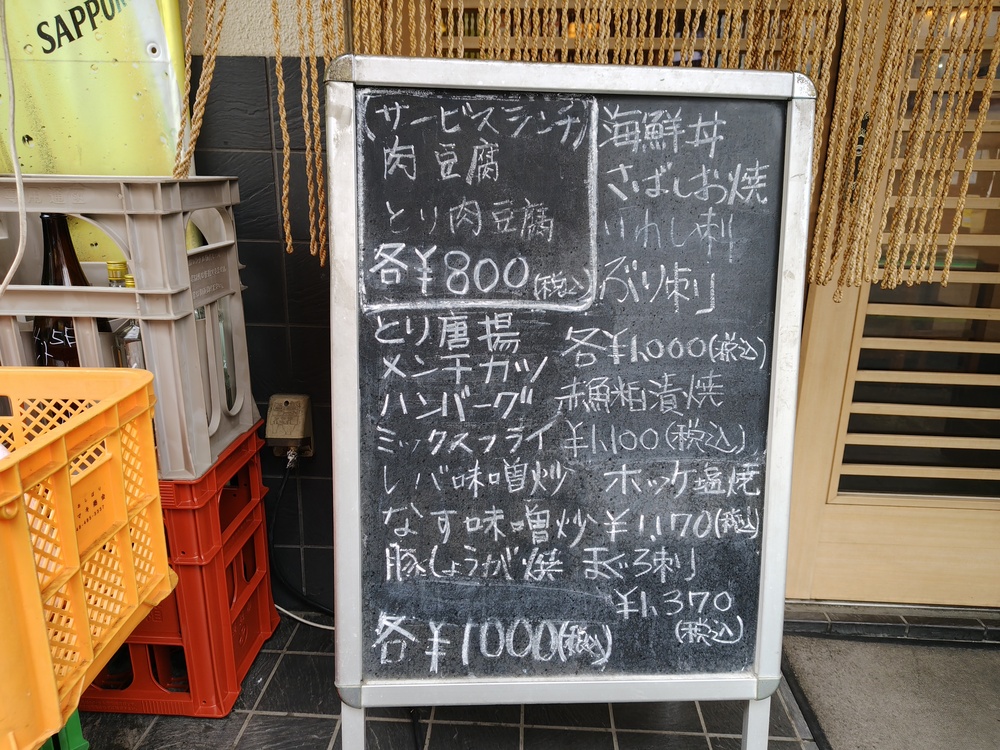 SAPPO
(サービスランチ)
肉豆腐
とり肉豆腐
各¥800(税込)
とり唐揚
メンチカツ
ハンバーグ
ミックスフライ
レバ味噌炒
なす味噌炒
豚しょうが焼
各¥1000(税込)
海鮮丼
さばしお焼
いわし刺
ぶり刺し
各¥1,000(税込)
赤魚粕漬焼
¥1,100(税込)
ホッケ塩焼
¥1,170(税込)
まぐろ刺し
¥1,370
(税込)